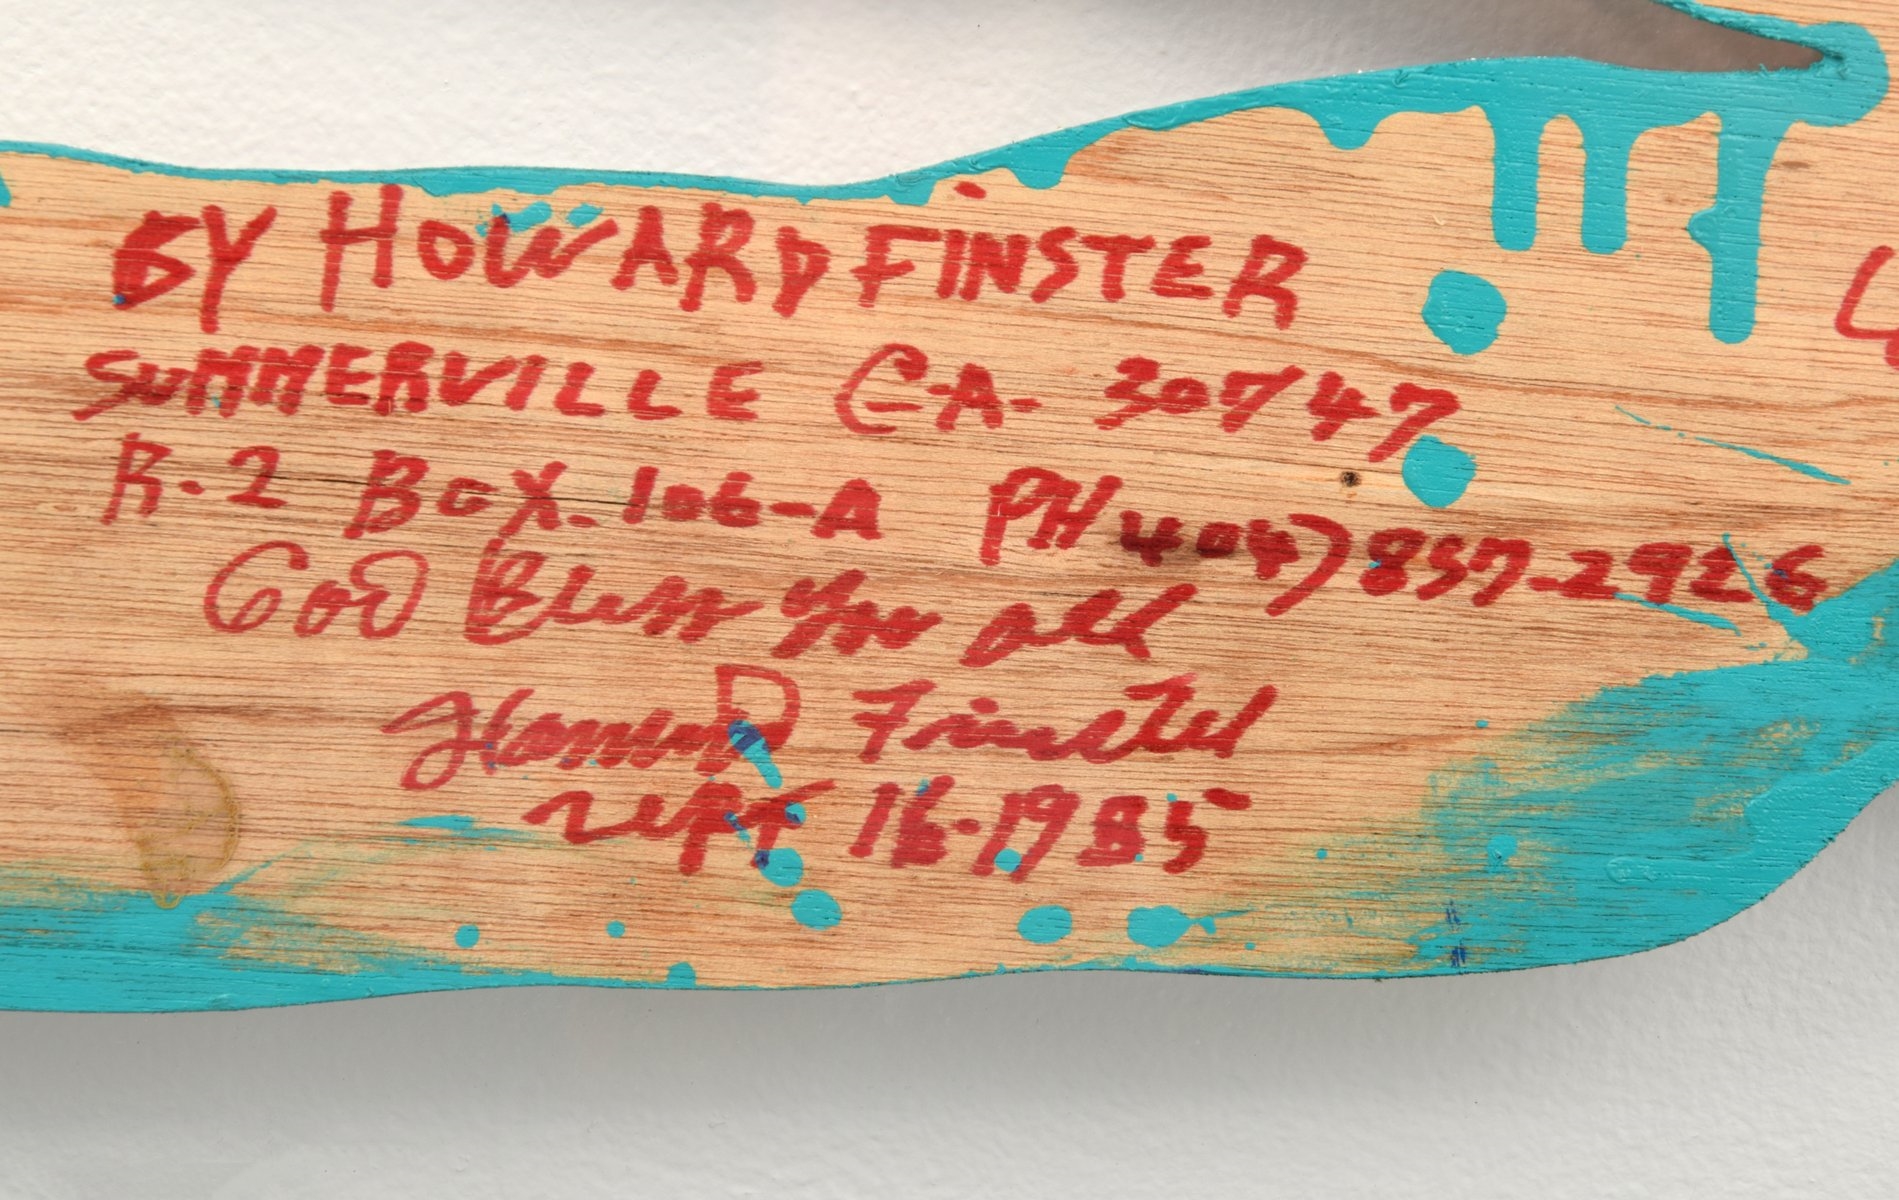 BY HOWARD FINSTER
SUMMERVILLE GA. 30747
R.2 BOX.106-A PH 404) 857-2926
GOD Bless you all
Howard Finster
SEPT 16-1985